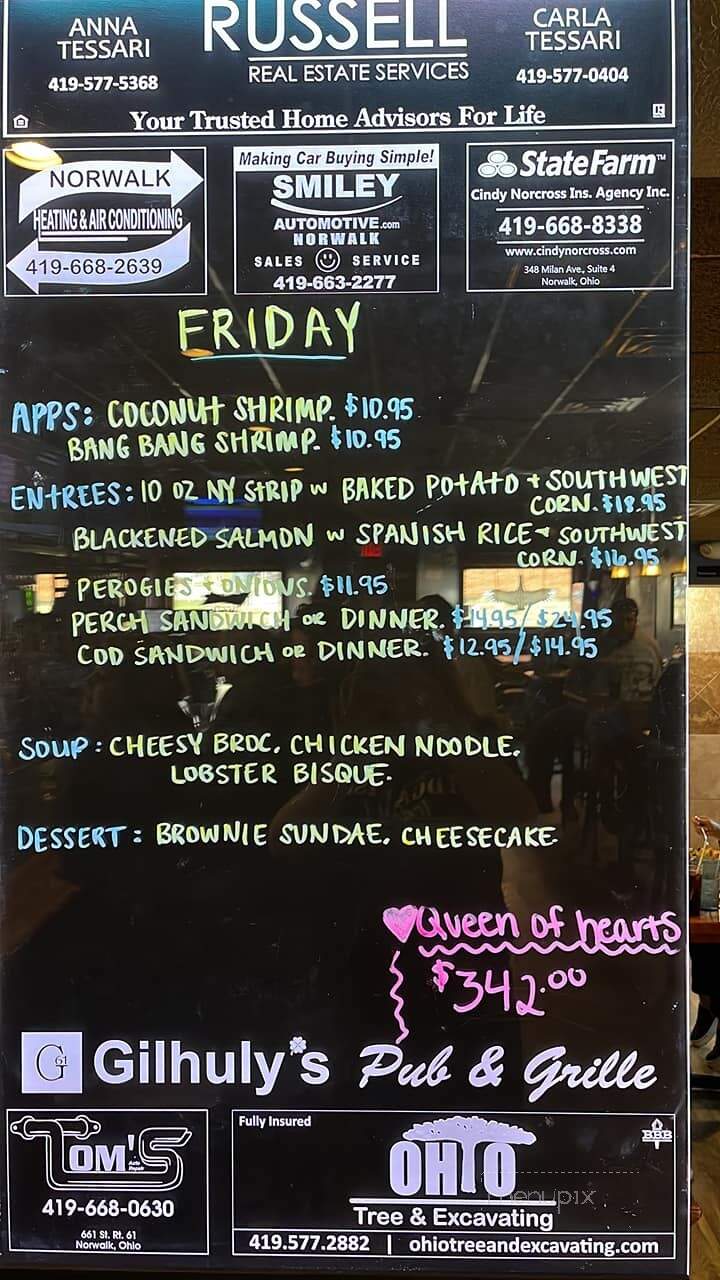 ANNA TESSARI
419-577-5368
RUSSELL
REAL ESTATE SERVICES
CARLA TESSARI
419-577-0404
Your Trusted Home Advisors For Life
NORWALK
HEATING & AIR CONDITIONING
419-668-2639
Making Car Buying Simple!
SMILEY
AUTOMOTIVE.com
NORWALK
SALES SERVICE
419-663-2277
StateFarm™
Cindy Norcross Ins. Agency Inc.
419-668-8338
www.cindynorcross.com
348 Milan Ave., Suite 4
Norwalk, Ohio
FRIDAY
APPS: COCONUT SHRIMP. $10.95
BANG BANG SHRIMP. $10.95
ENTREES: 10 OZ NY STRIP W BAKED POTATO + SOUTHWEST
CORN. $18.95
BLACKENED SALMON W SPANISH RICE + SOUTHWEST
CORN. $16.95
PEROGIES + ONIONS. $11.95
PERCH SANDWICH OR DINNER. $14.95/$24.95
COD SANDWICH OR DINNER. $12.95/$14.95
SOUP: CHEESY BROC. CHICKEN NOODLE.
LOBSTER BISQUE.
DESSERT: BROWNIE SUNDAE. CHEESECAKE.
Queen of hearts
$342.00
G 61 Gilhuly's Pub & Grille
TOM'S
Auto Repair
419-668-0630
661 St. Rt. 61
Norwalk, Ohio
Fully Insured
BBB
OHIO
Tree & Excavating
419.577.2882 | ohiotreeandexcavating.com
menupix